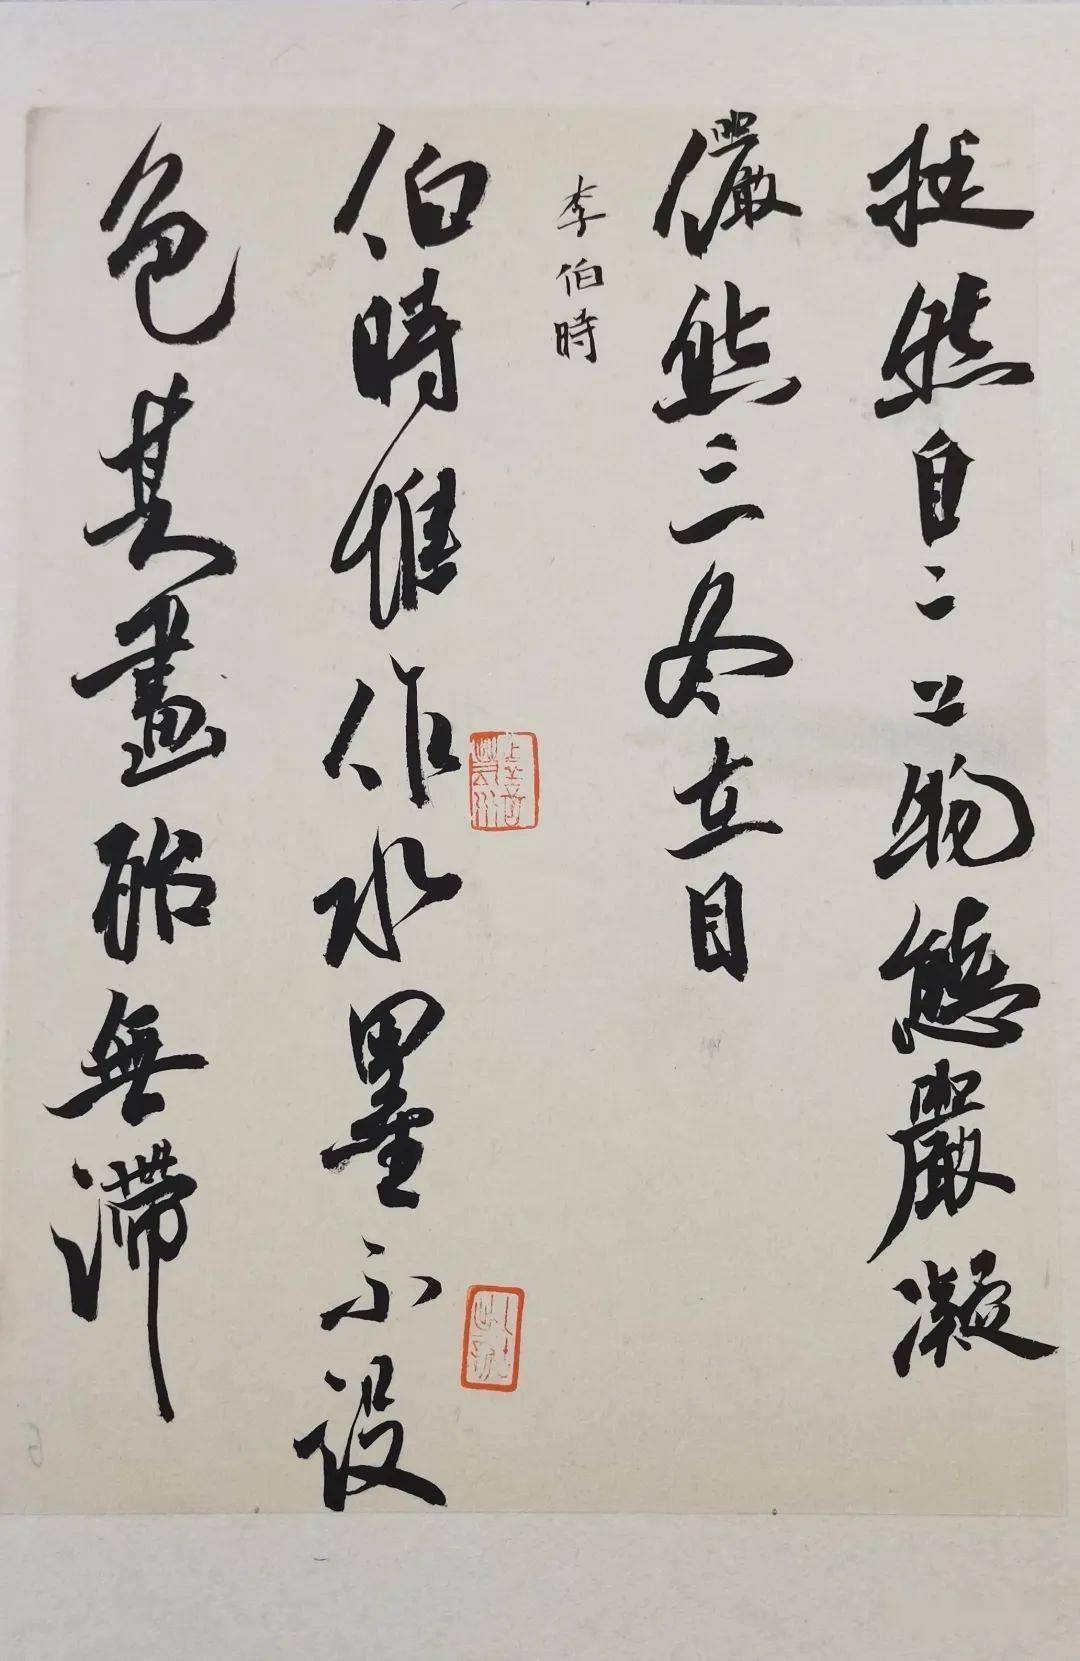 挺然自物態嚴凝
儼然三冬在目
李伯時
伯時惟作水墨不設
色其畫殆無滯